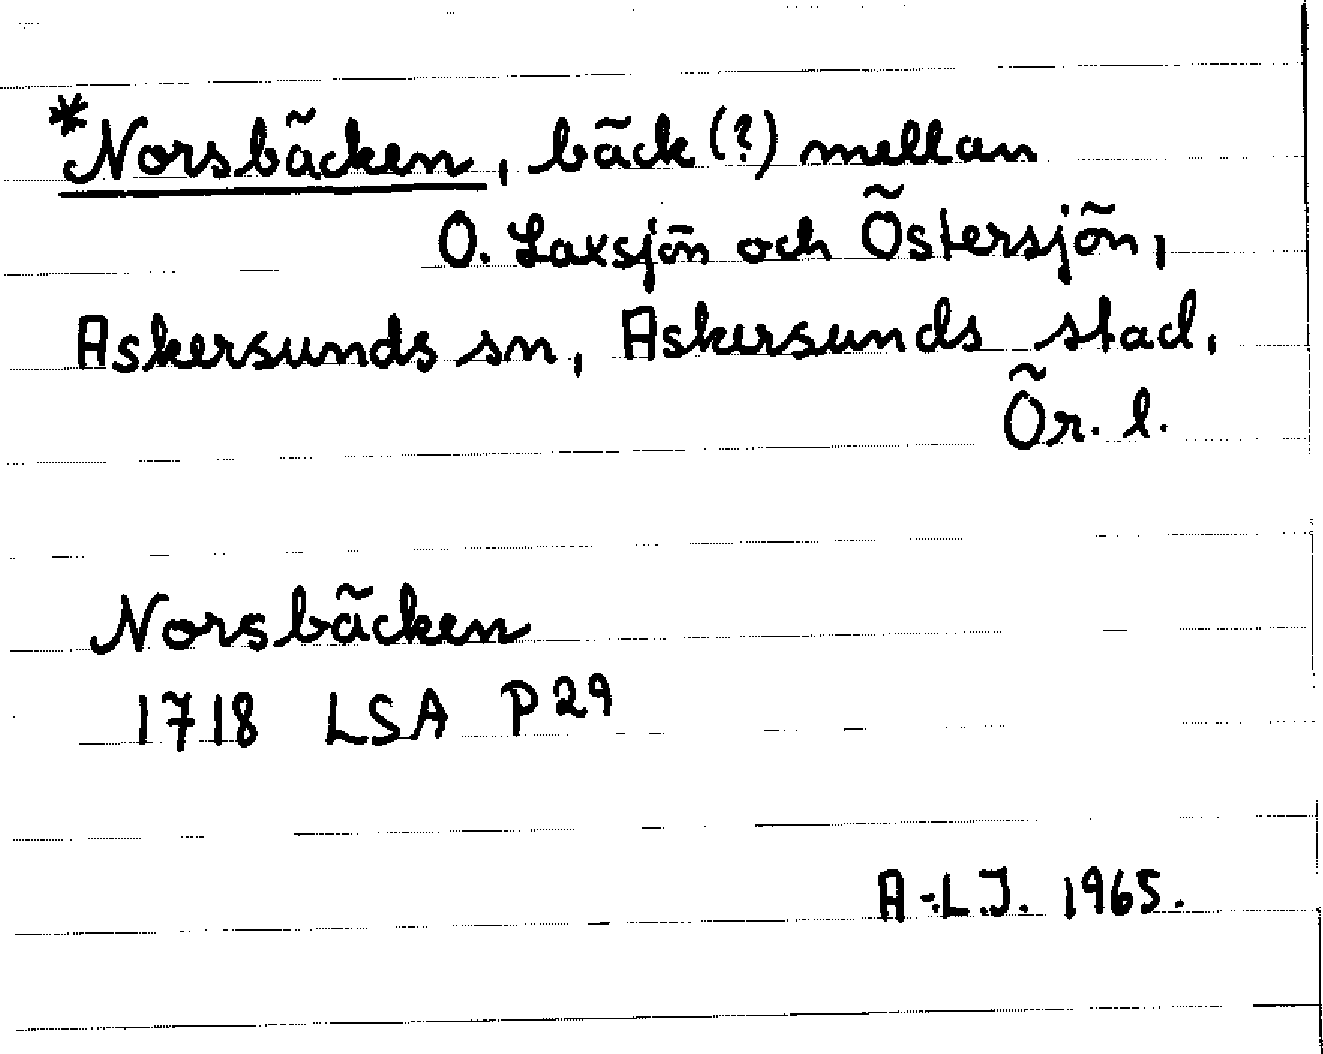 *Norsbäcken, bäck (?) mellan
O. Laxsjön och Östersjön,
Askersunds sn, Askersunds stad,
Ör. l.
Norsbäcken
1718 LSA P 29
A-L.J. 1965.